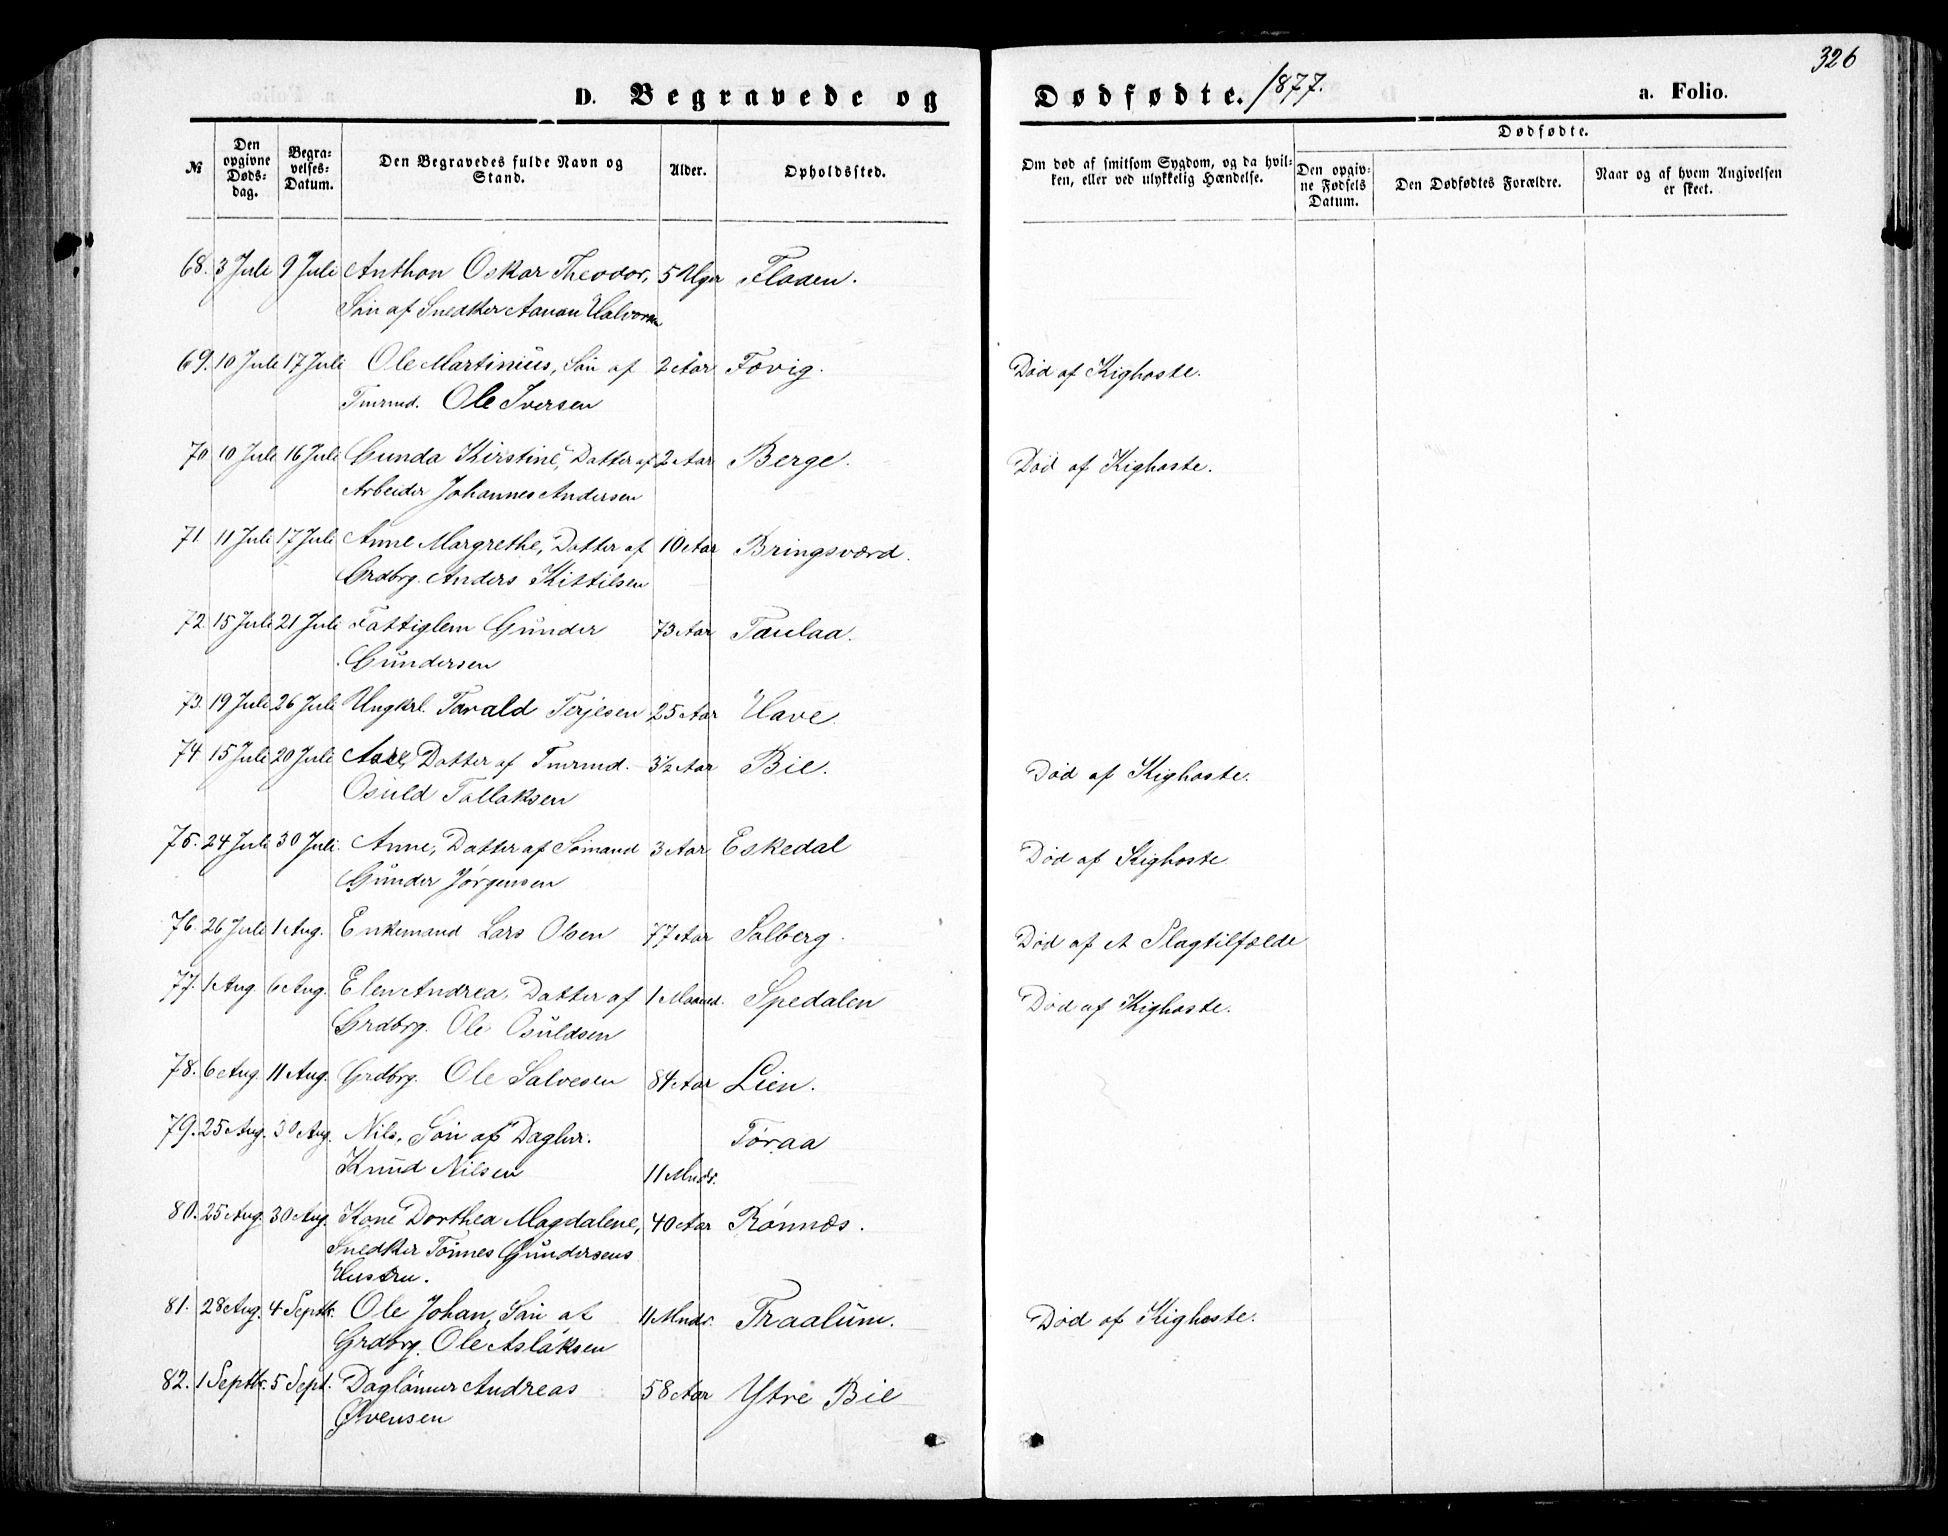 326
D. Begravede og Dødfødte. 1877. a. Folio.
№
Den opgivne Døds-dag.
Begra-velses-Datum.
Den Begravedes fulde Navn og Stand.
Alder.
Opholdssted.
Om død af smitsom Sygdom, og da hvil-ken, eller ved ulykkelig Hændelse.
Dødfødte.
Den opgiv-ne Fødsels Datum.
Den Dødfødtes Forældre.
Naar og af hvem Angivelsen er skeet.
68. 3 Juli 9 Juli Anthon Oskar Theodor, 5 Uger Floden.
Søn af Snedker Aanon Halvorsen
69. 10 Juli 17 Juli Ole Martinius, Søn af 2 Aar Fevig. Død af Kighoste.
Tmrmd. Ole Iversen
70 10 Juli 16 Juli Gunda Kirstine, Datter af 2 Aar Berge. Død af Kighoste.
Arbeider Johannes Andersen
71. 11 Juli 17 Juli Anne Margrethe, Datter af 10 Aar Bringsværd.
Grdbrg. Anders Kittilsen
72 15 Juli 21 Juli Fattiglem Gunder 73 Aar Taulaa.
Gundersen
73. 19 Juli 26 Juli Ungkrl. Tarald Terjesen 25 Aar Have.
74 15 Juli 20 Juli Aase, Datter af Tmrmd. 3½ Aar Bie. Død af Kighoste.
Osuld Tallaksen
75. 24 Juli 30 Juli. Anne, Datter af Sømand 3 Aar Eskedal Død af Kighoste
Gunder Jørgensen
76. 26 Juli 1 Aug. Enkemand Lars Olsen 77 Aar Solberg. Død af et Slagtilfælde
77. 1 Aug. 6 Aug. Elen Andrea, Datter af 1 Maaned. Spedalen Død af Kighoste.
Grdbrg. Ole Osuldsen
78. 6 Aug 11 Aug. Grdbrg. Ole Salvesen 84 Aar Lien.
79. 25 Aug. 30 Aug. Nils, Søn af Daglnr. Töraa
Knud Nilsen 11 Mndr.
80. 25 Aug. 30 Aug. Kone Dorthea Magdalene, 40 Aar Rønnæs.
Snedker Tönnes Gundersens
Hustru.
81. 28 Aug. 4 Septb. Ole Johan, Søn af 11 Mndr. Traalum. Død af Kighoste.
Grdbrg. Ole Aslaksen
82. 1 Septbr. 5 Sept. Daglönner Andreas 58 Aar Ytre Bie
Øvensen